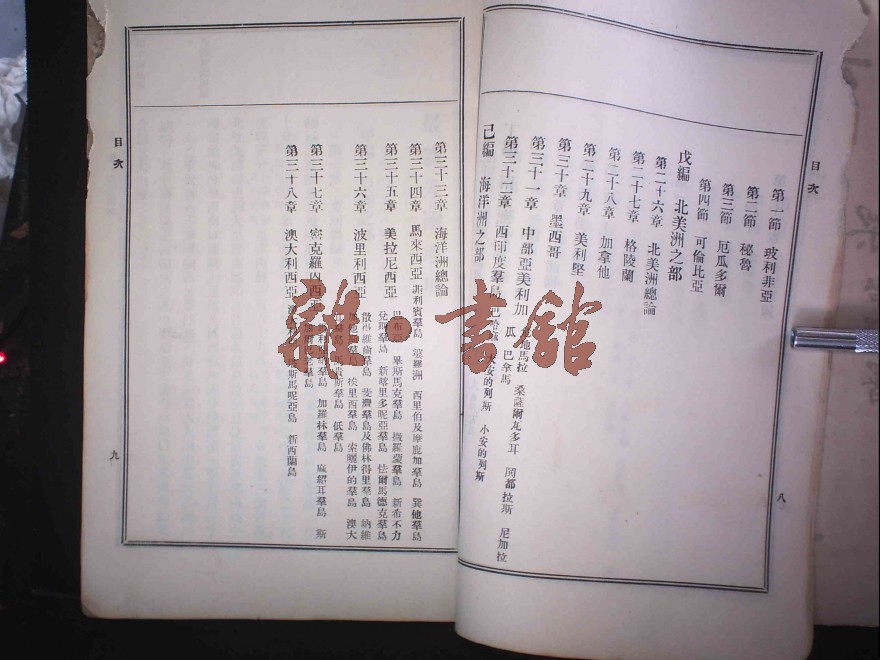 目次
第一節 玻利非亞
第二節 秘魯
第三節 厄瓜多爾
第四節 可倫比亞
戊編 北美洲之部
第二十六章 北美洲總論
第二十七章 格陵蘭
第二十八章 加拿他
第二十九章 美利堅
第三十章 墨西哥
第三十一章 中部亞美利加 地馬拉 桑薩爾龙多耳 閧都拉斯 尼加拉
瓜 巴拿馬
第三十二章 西印度羣島 巴哈 大安的列斯 小安的列斯
己編 海洋洲之部
八
目次
第三十三章 海洋洲總論
第三十四章 馬來西亞 菲利賓羣島 婆羅洲 西里伯及摩鹿加羣島 巽他羣島
第三十五章 美拉尼西亞 巴布亞 畢斯馬克羣島 撒羅蒙羣島 新希不力
羣島 新喀里多呢亞羣島 怯爾馬德克羣島
第三十六章 波里利西亞 散 維齒羣島 斐濟羣島及佛林得里羣島 納維
羣島 埃里西羣島 索曬伊的羣島 澳大
羣島 貴斯羣島 低羣島
第三十七章 密克羅 西亞 羣島 加羅林羣島 麻紹耳羣島 斯
第三十八章 澳大利西亞 斯馬呢亞島 新西蘭島
九
雜·書館